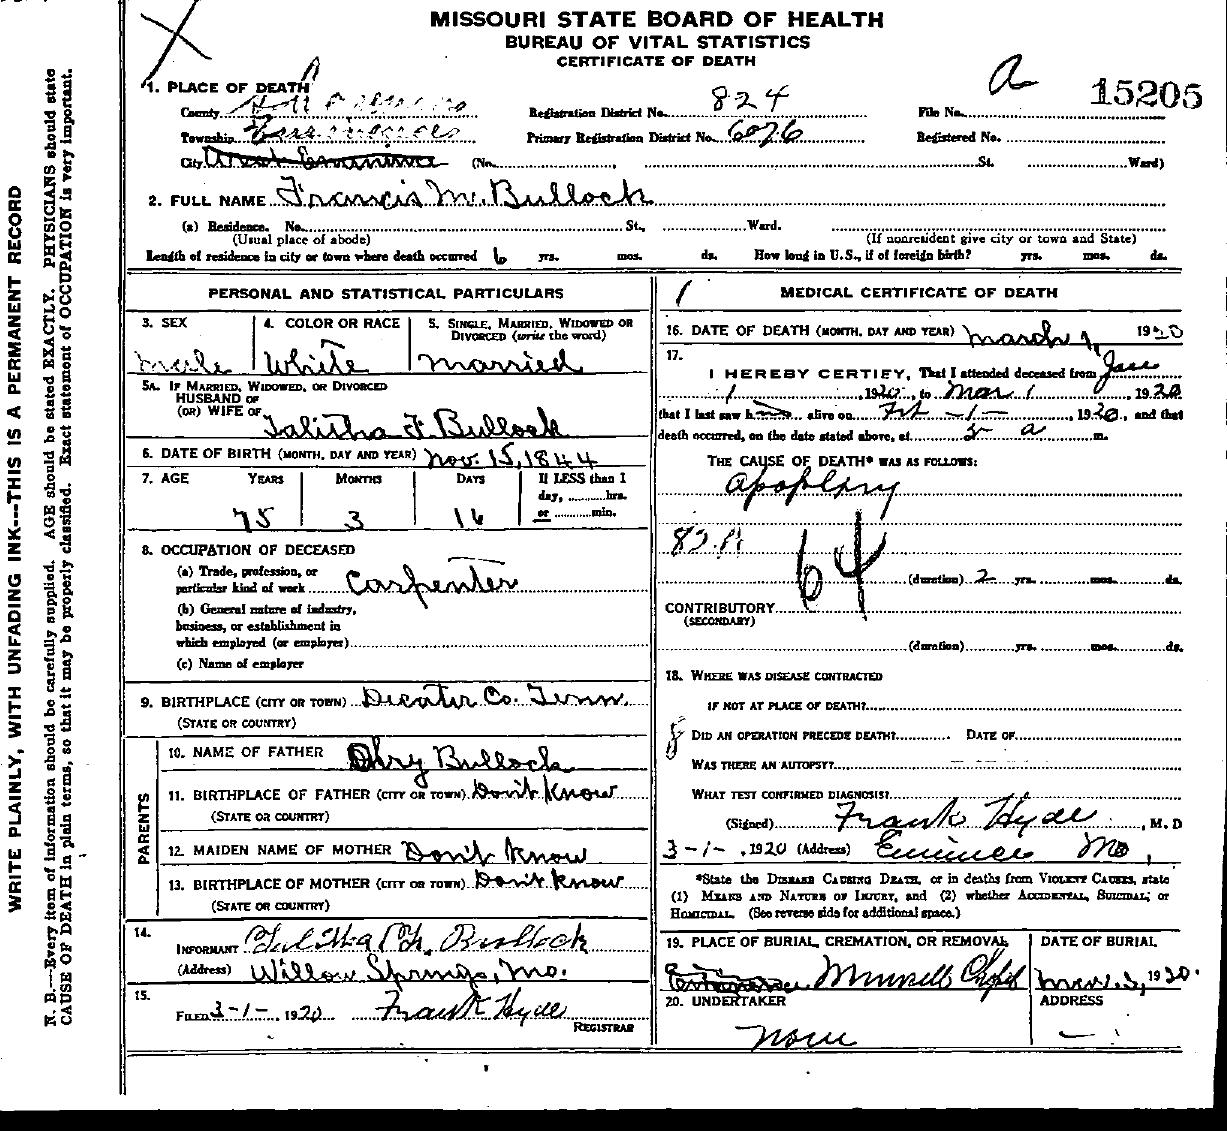 MISSOURI STATE BOARD OF HEALTH
BUREAU OF VITAL STATISTICS
CERTIFICATE OF DEATH
1. PLACE OF DEATH
County
Township
City (No. , St. Ward)
Registration District No. 824
Primary Registration District No. 6076
File No. 15205
Registered No.
2. FULL NAME Francis M. Bullock
(a) Residence. No. St., Ward.
(Usual place of abode) (If nonresident give city or town and State)
Length of residence in city or town where death occurred 6 yrs. mos. ds. How long in U.S., if of foreign birth? yrs. mos. ds.
PERSONAL AND STATISTICAL PARTICULARS
3. SEX
male
4. COLOR OR RACE
White
5. SINGLE, MARRIED, WIDOWED OR DIVORCED (write the word)
Married
5A. IF MARRIED, WIDOWED, OR DIVORCED
HUSBAND OF
(OR) WIFE OF Talitha F Bullock
6. DATE OF BIRTH (MONTH, DAY AND YEAR) Nov. 15, 1844
7. AGE YEARS MONTHS DAYS If LESS than 1
day, hrs.
or min.
75 3 16
8. OCCUPATION OF DECEASED
(a) Trade, profession, or
particular kind of work Carpenter
(b) General nature of industry,
business, or establishment in
which employed (or employer)
(c) Name of employer
9. BIRTHPLACE (CITY OR TOWN) Decater Co. Tenn.
(STATE OR COUNTRY)
PARENTS
10. NAME OF FATHER Bullock
11. BIRTHPLACE OF FATHER (CITY OR TOWN) Don't Know
(STATE OR COUNTRY)
12. MAIDEN NAME OF MOTHER Don't Know
13. BIRTHPLACE OF MOTHER (CITY OR TOWN) Don't Know
(STATE OR COUNTRY)
14.
INFORMANT Bullock
(Address) Willow Springs, Mo.
15.
FILED 3-1-, 1920 Frank Hyde
REGISTRAR
MEDICAL CERTIFICATE OF DEATH
16. DATE OF DEATH (MONTH, DAY AND YEAR) March 1, 1920
17.
I HEREBY CERTIFY, That I attended deceased from Jan
1, 1920, to Mar 1, 1920
that I last saw h alive on Feb -1-, 1920, and that
death occurred, on the date stated above, at 3 a m.
THE CAUSE OF DEATH* WAS AS FOLLOWS:
Apoplexy
82A 64
(duration) 2 yrs. mos. ds.
CONTRIBUTORY
(SECONDARY)
(duration) yrs. mos. ds.
18. WHERE WAS DISEASE CONTRACTED
IF NOT AT PLACE OF DEATH?
DID AN OPERATION PRECEDE DEATH? DATE OF
WAS THERE AN AUTOPSY?
WHAT TEST CONFIRMED DIAGNOSIS?
(Signed) Frank Hyde, M. D
3-1-, 1920 (Address) Eminence Mo,
*State the DISEASE CAUSING DEATH, or in deaths from VIOLENT CAUSES, state
(1) MEANS AND NATURE OF INJURY, and (2) whether ACCIDENTAL, SUICIDAL, or
HOMICIDAL. (See reverse side for additional space.)
19. PLACE OF BURIAL, CREMATION, OR REMOVAL
DATE OF BURIAL
1920.
20. UNDERTAKER
None
ADDRESS
WRITE PLAINLY, WITH UNFADING INK---THIS IS A PERMANENT RECORD
N. B.—Every item of information should be carefully supplied. AGE should be stated EXACTLY. PHYSICIANS should state
CAUSE OF DEATH in plain terms, so that it may be properly classified. Exact statement of OCCUPATION is very important.